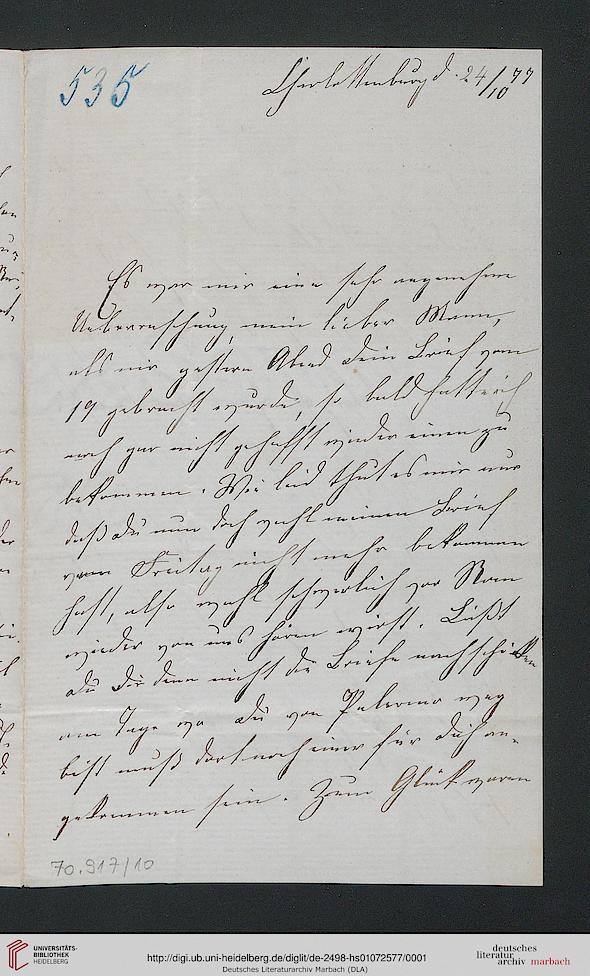 535
Charlottenburg d. 24/10 77
Es war mir eine sehr angenehme
Ueberraschung, mein lieber Mann,
als mir gestern Abend Dein Brief vom
19 gebracht wurde, so bald hatte ich
noch gar nicht gehofft wieder einen zu
bekommen. Wie leid thut es mir nur
daß du nun doch wohl meinen Brief
vom Freitag nicht mehr bekommen
hast, also wohl schwerlich vor Rom
wieder von uns hören wirst. Läßt
du Dir denn nicht die Briefe nachschicken
am Tage wo du von Palermo weg
bist muß dort noch einer für Dich an-
gekommen sein. Zum Glück waren
70.917/10
UNIVERSITÄTS-
BIBLIOTHEK
HEIDELBERG
http://digi.ub.uni-heidelberg.de/diglit/de-2498-hs01072577/0001
Deutsches Literaturarchiv Marbach (DLA)
deutsches
literatur
archiv marbach